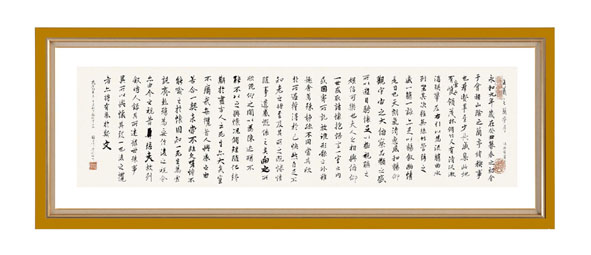 永和九年歲在癸丑暮春之初會
于會稽山陰之蘭亭脩禊事
也群賢畢至少長咸集此地
有崇山峻領茂林脩竹又有清流激
湍暎帶左右引以為流觴曲水
列坐其次雖無絲竹管弦之
盛一觴一詠亦足以暢敘幽情
是日也天朗氣清惠風和暢仰
觀宇宙之大俯察品類之盛
所以遊目騁懷足以極視聽之
娛信可樂也夫人之相與俯仰
一世或取諸懷抱悟言一室之內
或因寄所託放浪形骸之外雖
趣舍萬殊靜躁不同當其欣
於所遇蹔得於己怏然自足不
知老之將至及其所之既惓情
隨事遷感慨係之矣向之所
欣俛仰之閒以為陳迹猶不
能不以之興懷況脩短隨化終
期於盡古人云死生亦大矣豈
不痛哉每攬昔人興感之由
若合一契未嘗不臨文嗟悼不
能喻之於懷固知一死生為虛
誕齊彭殤為妄作後之視今
亦由今之視昔悲夫故列
敘時人錄其所述雖世殊事
異所以興懷其致一也後之攬
者亦將有感於斯文